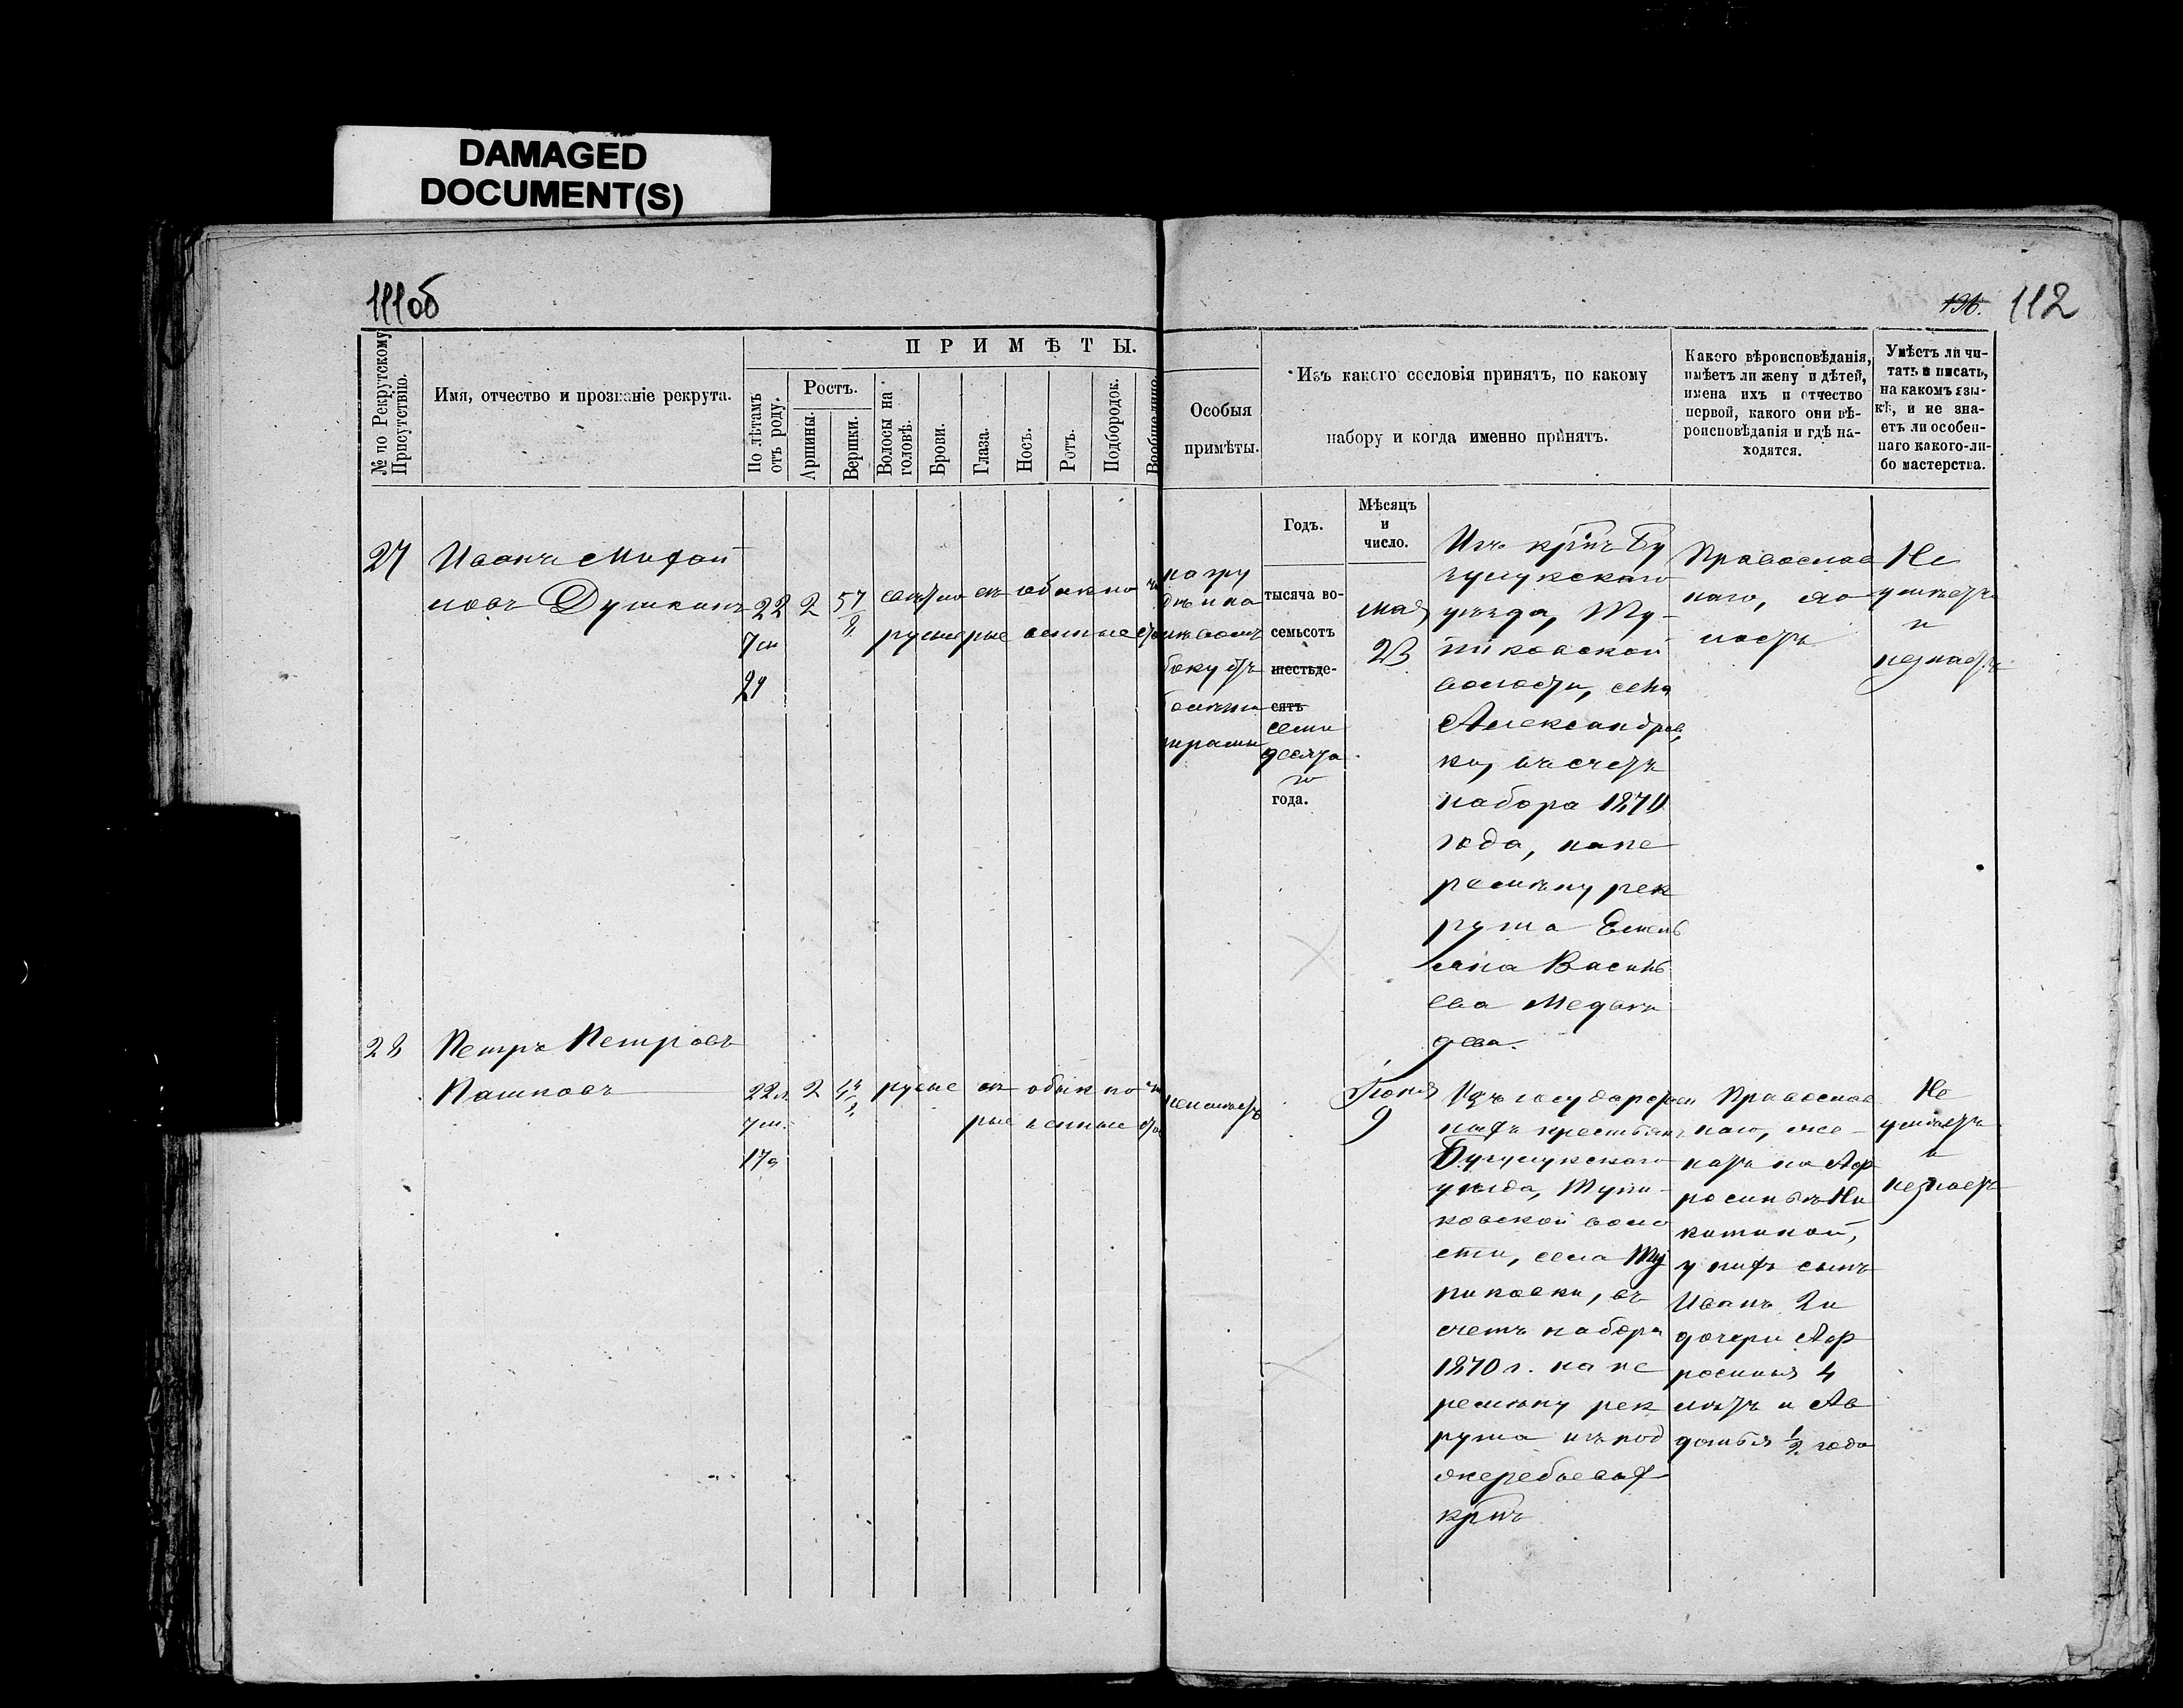 DAMAGED
DOCUMENT(S)
111об
196.
112
№ по Рекрутскому
Присутствію.
Имя, отчество и прозваніе рекрута.
ПРИМѢТЫ.
По лѣтамъ
отъ роду.
Ростъ.
Аршины.
Вершки.
Волосы на
головѣ.
Брови.
Глаза.
Носъ.
Ротъ.
Подбородок.
Вообще лицо.
Особыя
примѣты.
Изъ какого сословія принятъ, по какому
набору и когда именно принятъ.
Какого вѣроисповѣданія,
имѣетъ ли жену и дѣтей,
имена ихъ и отчество
первой, какого они вѣ-
роисповѣданія и гдѣ на-
ходятся.
Умѣетъ ли чи-
тать и писать,
на какомъ язы-
кѣ, и не зна-
етъ ли особен-
наго какого-ли-
бо мастерства.
Годъ.
Мѣсяцъ
и
число.
тысяча во-
семьсотъ
шестьде-
сятъ
семи
десята
го
года.
27
Иванъ Митрофа
новъ Душкинъ
22
7 м
24
2
5 7/8
свѣтло
русые
сѣ
рые
обыкно
венные
чи
стое
на гру
ди и на
лѣвомъ
боку отъ
болѣзни
шрамы
мая
23
Изъ кртнъ Бу
зулукскаго
уѣзда, Ту-
пиковской
волости, села
Александров
ки, въ счетъ
набора 1870
года, на пе
ремѣну рек
рута Емель
яна Василь
ева Медвѣ
дева.
Православ
наго, хо
лостъ
Не
умѣетъ
и
незнаетъ
28
Петръ Петровъ
Пашковъ
22 л.
7 м.
17 д
2
русые
сѣ
рые
обыкно
венные
чи
стое
неимѣетъ
Іюня
9
Изъ государствен
ныхъ крестьянъ
Бузулукскаго
уѣзда, Тупи-
ковской воло
сти, села Ту
пиковки, въ
счетъ набора
1870 г. на пе
ремѣну рек
рута изъ под
жеребьевых
кртнъ
Православ
наго, же-
натъ на Аф
росиньѣ Ни
китиной,
у нихъ сынъ
Иванъ 2 и
дочери Аф
росинья 4
лѣтъ и Ав
дотья 1/2 года
Не
умѣетъ
и
незнаетъ